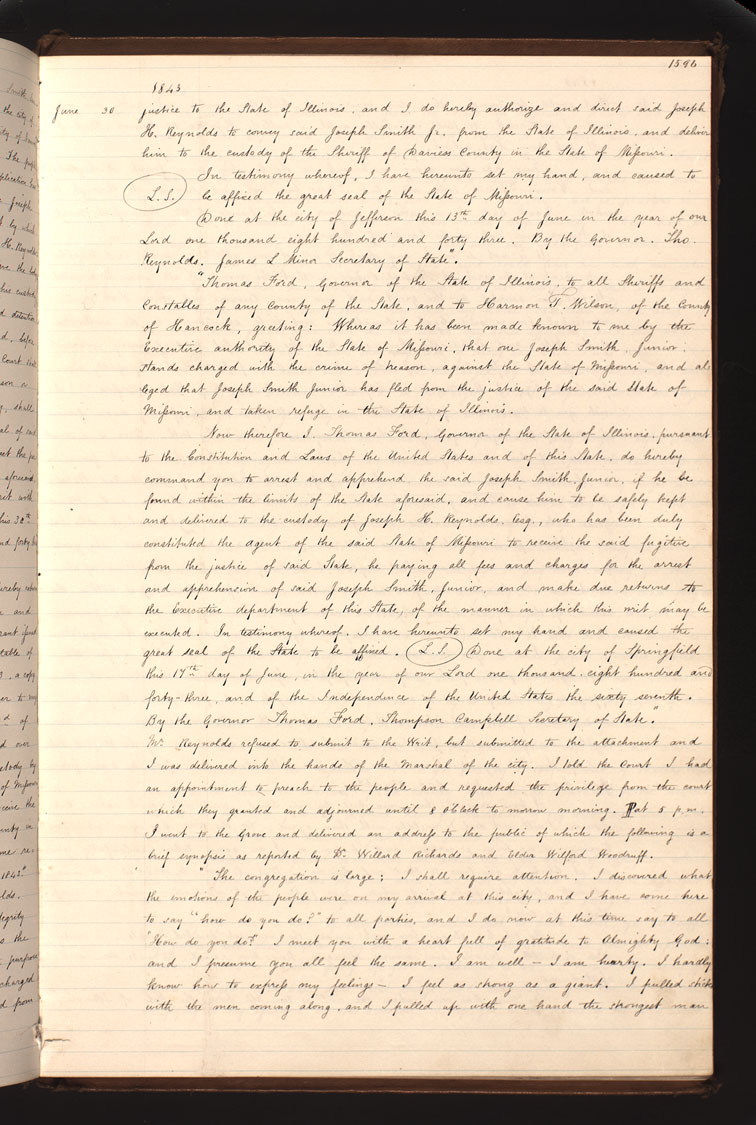 1596
1843
June 30 justice to the State of Illinois, and I do hereby authorize and direct said Joseph
H. Reynolds to convey said Joseph Smith Jr. from the State of Illinois, and deliver
him to the custody of the Sheriff of Daviess County in the State of Missouri.
In testimony whereof, I have hereunto set my hand, and caused to
L.S. be affixed the great seal of the State of Missouri.
Done at the city of Jefferson this 13th day of June in the year of our
Lord one thousand eight hundred and forty three. By the Governor. Tho.
Reynolds. James L Minor Secretary of State".
"Thomas Ford, Governor of the State of Illinois, to all Sheriffs and
Constables of any County of the State, and to Harmon T. Wilson, of the County
of Hancock, greeting: Whereas it has been made known to me by the
Executive authority of the State of Missouri, that one Joseph Smith, Junior,
stands charged with the crime of treason, against the State of Missouri, and al
leged that Joseph Smith Junior has fled from the justice of the said State of
Missouri, and taken refuge in the State of Illinois.
Now therefore I, Thomas Ford, Governor of the State of Illinois, pursuant
to the Constitution and Laws of the United States and of this State, do hereby
command you to arrest and apprehend the said Joseph Smith, Junior, if he be
found within the limits of the State aforesaid, and cause him to be safely kept
and delivered to the custody of Joseph H. Reynolds, Esq., who has been duly
constituted the agent of the said State of Missouri to receive the said fugitive
from the justice of said State, he paying all fees and charges for the arrest
and apprehension of said Joseph Smith, Junior, and make due returns to
the Executive department of this State, of the manner in which this writ may be
executed. In testimony whereof, I have hereunto set my hand and caused the
great seal of the State to be affixed. L.S. Done at the city of Springfield
this 17th day of June, in the year of our Lord one thousand, eight hundred and
forty-three, and of the Independence of the United States the sixty seventh.
By the Governor Thomas Ford, Thompson Campbell Secretary of State."
Mr Reynolds refused to submit to the Writ, but submitted to the attachment and
I was delivered into the hands of the Marshal of the city. I told the Court I had
an appointment to preach to the people and requested the privilege from the court
which they granted and adjourned until 8 O'Clock to morrow morning. At 5 p.m.
I went to the Grove and delivered an address to the public of which the following is a
brief synopsis as reported by Dr. Willard Richards and Elder Wilford Woodruff.
"The congregation is large; I shall require attention. I discovered what
the emotions of the people were on my arrival at this city, and I have come here
to say "how do you do?" to all parties, and I do now at this time say to all
"How do you do?" I meet you with a heart full of gratitude to Almighty God;
and I presume you all feel the same. I am well – I am hearty. I hardly
know how to express my feelings – I feel as strong as a giant. I pulled sticks
with the men coming along, and I pulled up with one hand the strongest man